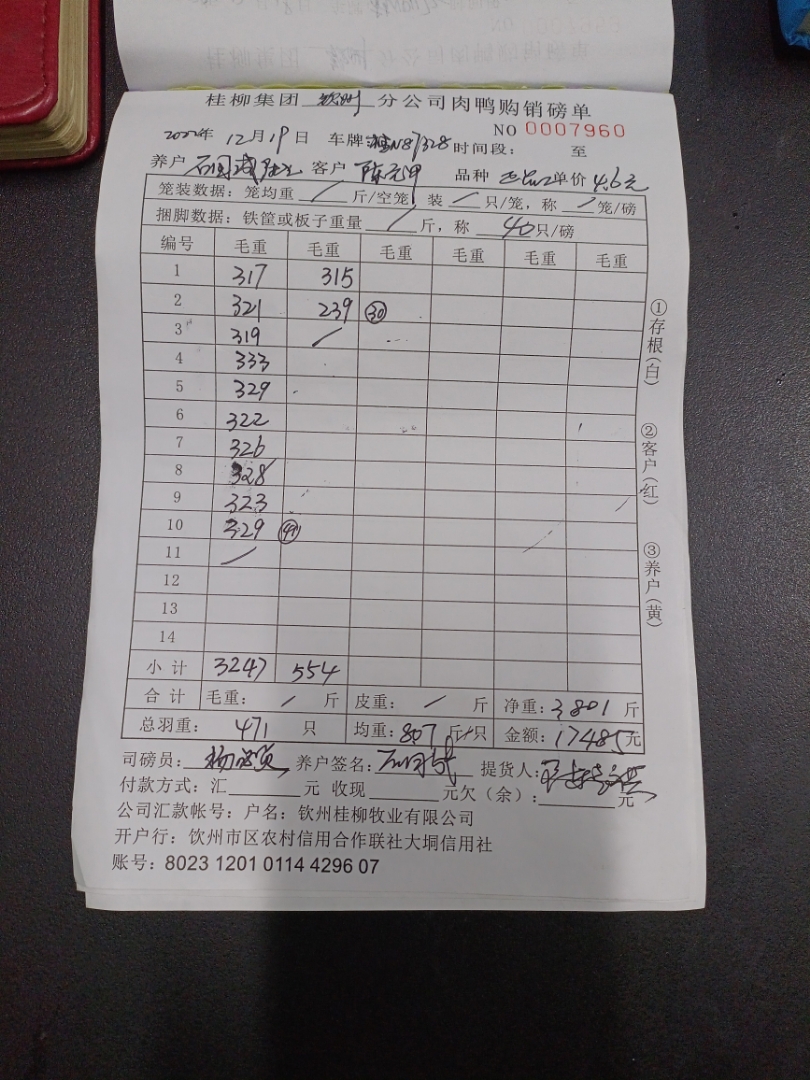 桂柳集团 钦州 分公司肉鸭购销磅单
NO 0007960
2022年 12月19日 车牌: N87328 时间段: 至
养户 石国成 客户 陈元 品种 单价 4.6元
笼装数据: 笼均重 / 斤/空笼, 装 / 只/笼, 称 / 笼/磅
捆脚数据: 铁筐或板子重量 / 斤, 称 40只/磅
编号 毛重 毛重 毛重 毛重 毛重 毛重
1 317 315
2 321 239 ㉚
3 319 /
4 333
5 329
6 322
7 326
8 328
9 323
10 329 ㊶
11 /
12
13
14
小计 3247 554
合计 毛重: / 斤 皮重: / 斤 净重: 3801 斤
总羽重: 471 只 均重: 807 斤/只 金额: 17485元
司磅员: 杨 养户签名: 石国成 提货人:
付款方式: 汇 元 收现 元欠(余): 元
公司汇款帐号: 户名: 钦州桂柳牧业有限公司
开户行: 钦州市区农村信用合作联社大垌信用社
账号: 8023 1201 0114 4296 07
①存根(白)
②客户(红)
③养户(黄)